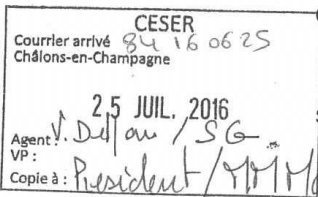 CESER
Courrier arrivé 84 16 06 25
Châlons-en-Champagne
25 JUIL. 2016
Agent : V. / SG
VP :
Copie à : President /